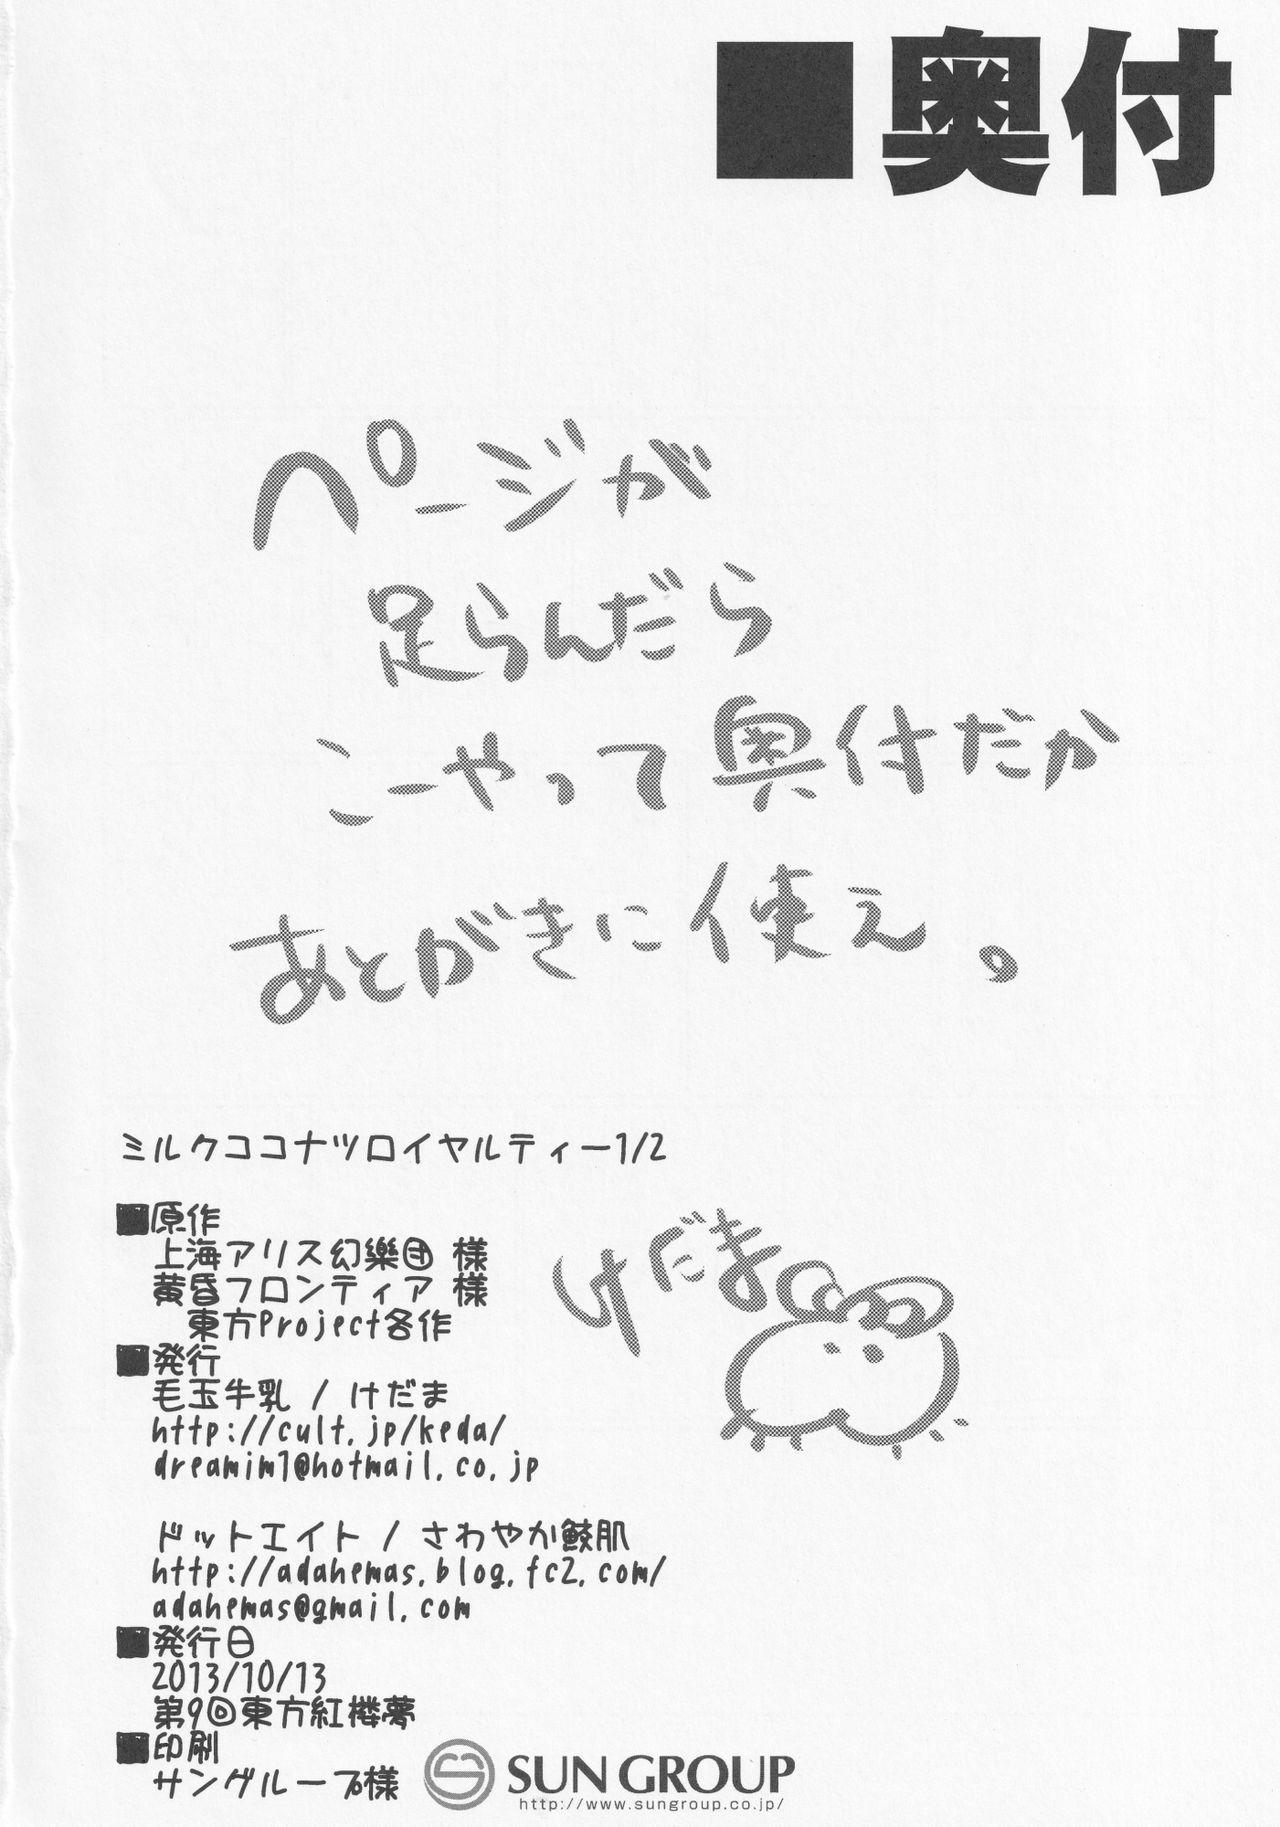 ■奥付
ページが
足らんだら
こーやって奥付だか
あとがきに使え。
ミルクココナツロイヤルティー1/2
■原作
上海アリス幻樂団 様
黄昏フロンティア 様
東方Project各作
■発行
毛玉牛乳 / けだま
http://cult.jp/keda/
dreamim1@hotmail.co.jp
けだま
ドットエイト / さわやか鮫肌
http://adahemas.blog.fc2.com/
adahemas@gmail.com
■発行日
2013/10/13
第9回東方紅楼夢
■印刷
サングループ様
SUN GROUP
http://www.sungroup.co.jp/